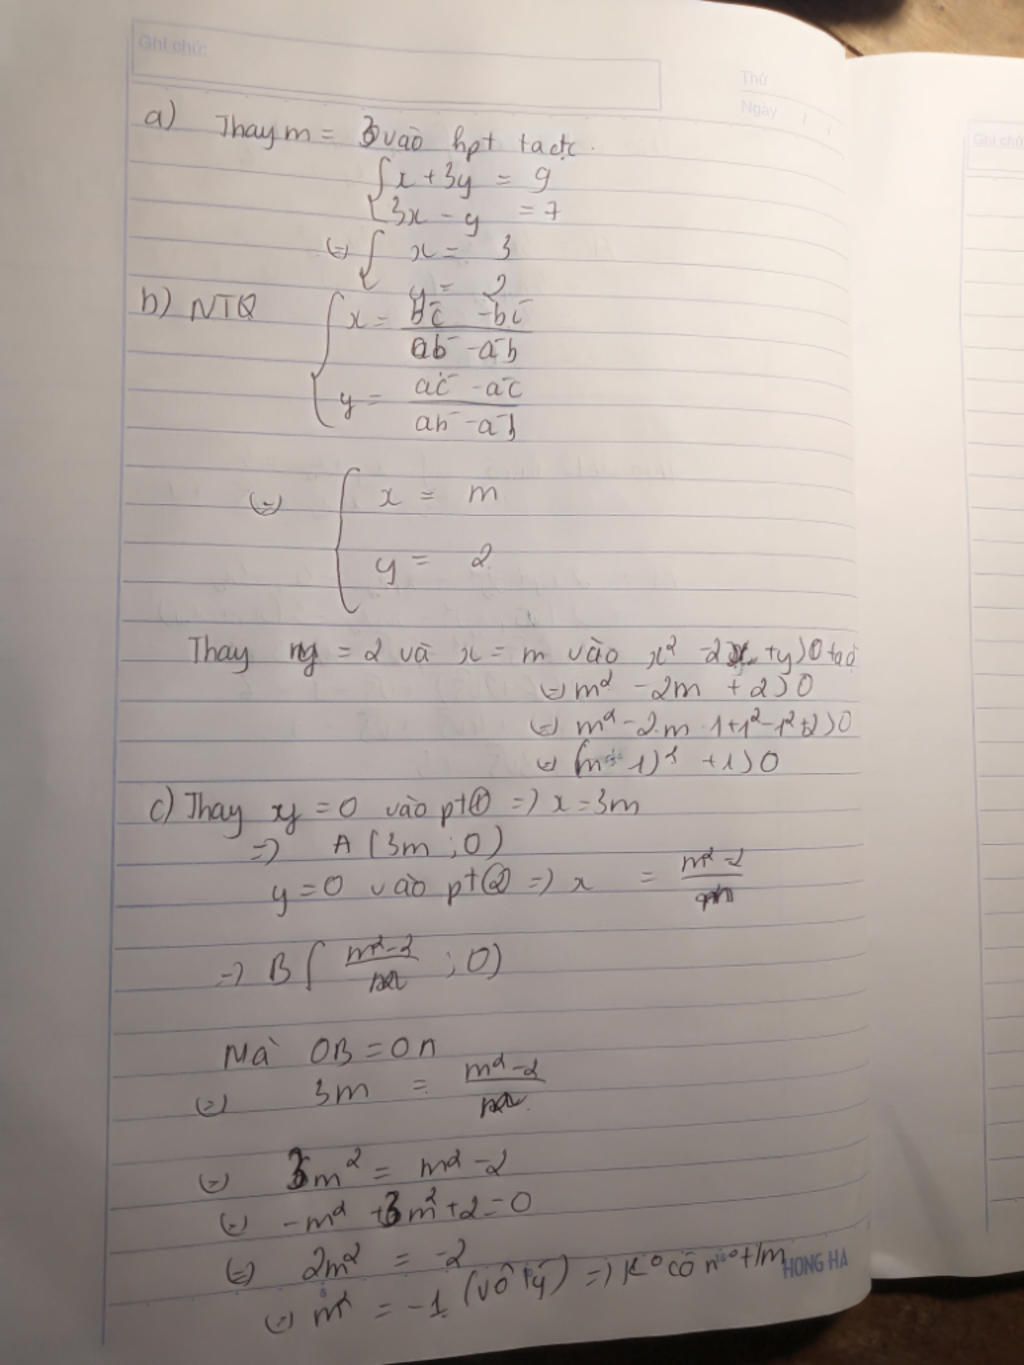 Ghi chú:
Thứ
Ngày
Ghi chú
a) Thay m = 3 vào hpt tađc.
x + 3y = 9
3x - y = 7
(=) x = 3
y = 2
b) NTQ x = bc̄ - b̄c / ab̄ - āb
y = ac̄ - āc / ab̄ - āb
(=) x = m
y = 2
Thay y = 2 và x = m vào x² - 2x + y > 0 ta đ
(=) m² - 2m + 2 > 0
(=) m² - 2.m.1 + 1² - 1² + 2 > 0
(=) (m - 1)² + 1 > 0
c) Thay y = 0 vào pt① => x = 3m
=> A (3m ; 0)
y = 0 vào pt② => x = m² - 2 / m
=> B ( m² - 2 / m ; 0)
Mà OB = OA
(=) 3m = m² - 2 / m
(=) 3m² = m² - 2
(=) -m² + 3m² + 2 = 0
(=) 2m² = -2
(=) m² = -1 (vô lý) => K° có n° t/m
HONG HA